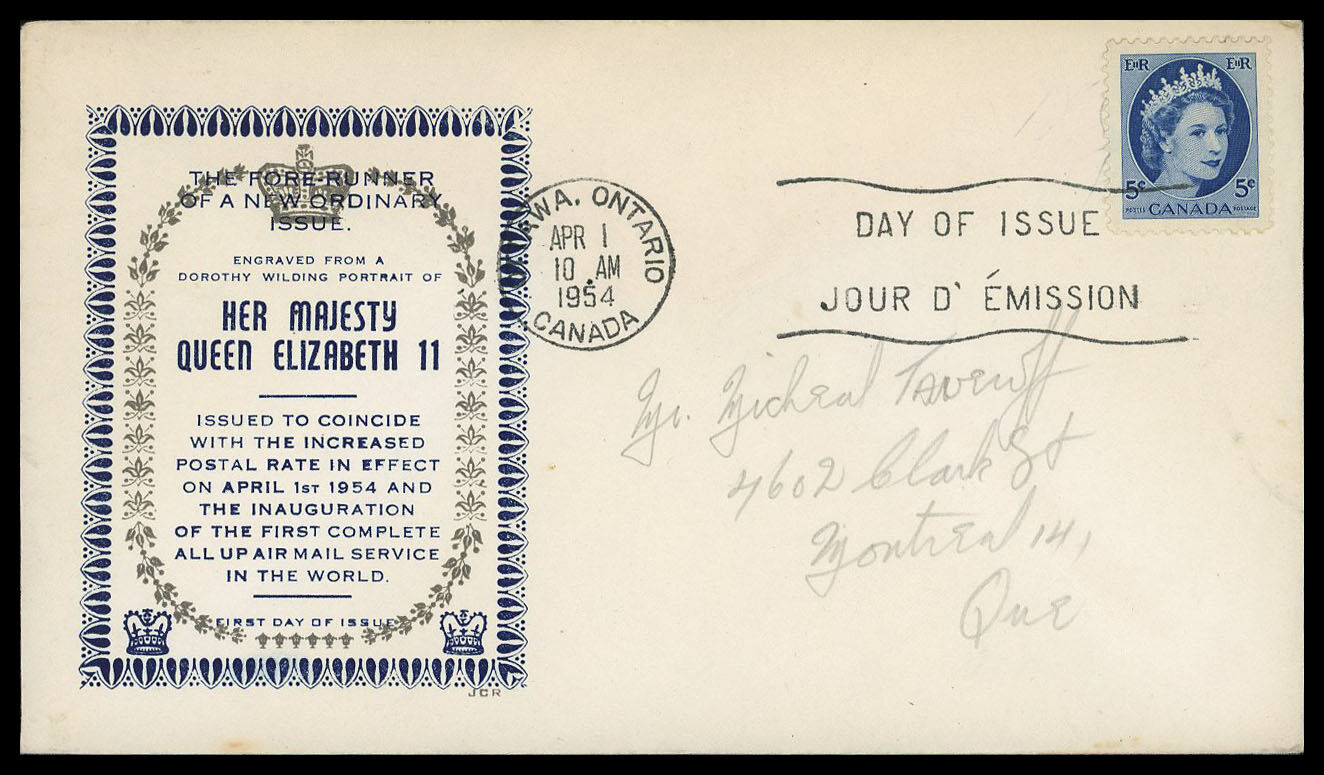 THE FORE-RUNNER
OF A NEW ORDINARY
ISSUE.
ENGRAVED FROM A
DOROTHY WILDING PORTRAIT OF
HER MAJESTY
QUEEN ELIZABETH 11
ISSUED TO COINCIDE
WITH THE INCREASED
POSTAL RATE IN EFFECT
ON APRIL 1ST 1954 AND
THE INAUGURATION
OF THE FIRST COMPLETE
ALL UP AIR MAIL SERVICE
IN THE WORLD.
FIRST DAY OF ISSUE
JCR
ONTARIO
APR 1
10 AM
1954
CANADA
DAY OF ISSUE
JOUR D' ÉMISSION
EIIR EIIR
5¢ 5¢
POSTES CANADA POSTAGE
Mr. Micheal
4602 Clark St
Montreal 14,
Que